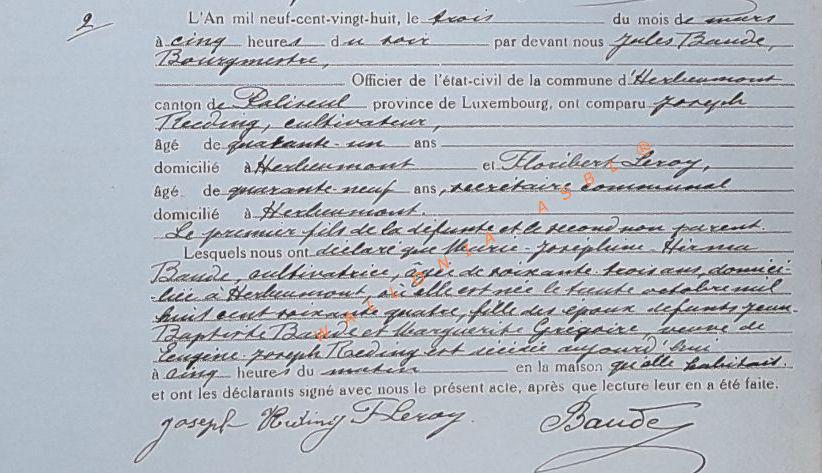 2
L'An mil neuf-cent-vingt-huit, le trois du mois de mars
à cinq heures du soir par devant nous Jules Baude,
Bourgmestre,
Officier de l'état-civil de la commune d'Herbeumont
canton de Paliseul province de Luxembourg, ont comparu Joseph
Reding, cultivateur,
âgé de quarante-un ans
domicilié à Herbeumont et Floribert Leroy,
âgé de quarante-neuf ans, secrétaire communal
domicilié à Herbeumont.
Le premier fils de la défunte et le second non parent.
Lesquels nous ont déclaré que Marie-Joséphine-Hirma
Baude, cultivatrice, âgée de soixante-trois ans, domici-
liée à Herbeumont, où elle est née le trente octobre mil
huit cent soixante quatre, fille des époux défunts Jean-
Baptiste Baude et Marguerite Grégoire, veuve de
Eugène-Joseph Reding est décédée aujourd'hui
à cinq heures du matin en la maison qu'elle habitait.
et ont les déclarants signé avec nous le présent acte, après que lecture leur en a été faite.
Joseph Reding FLeroy. Baude
WAILDNIA ASBL ®